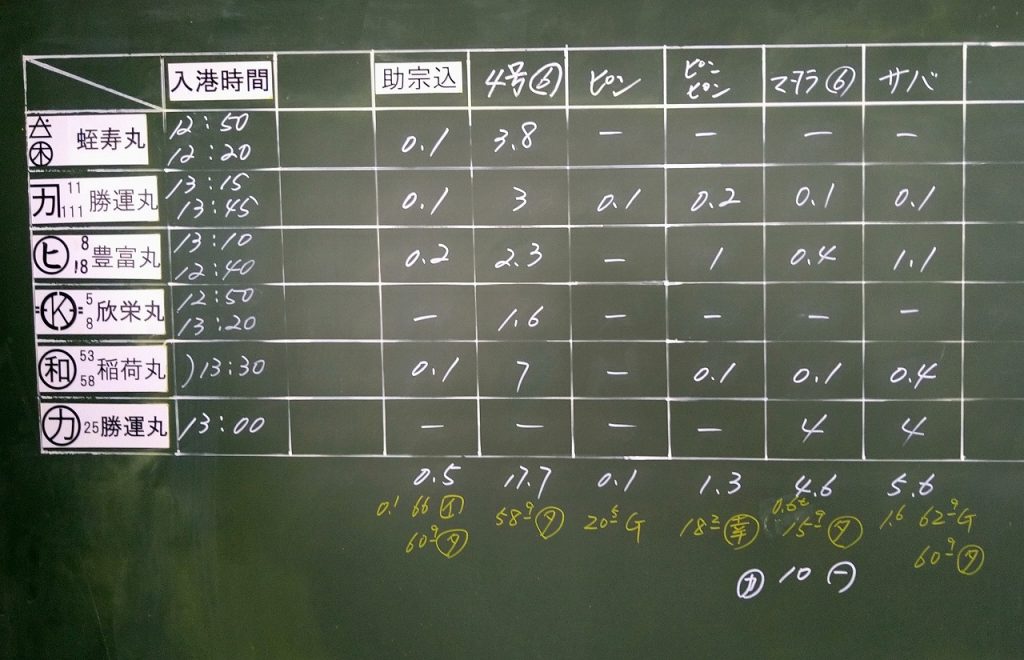 入港時間 助宗込 4号⑥ ピン ピンピン マダラ⑥ サバ
蛭寿丸 12:50 12:20 0.1 3.8 – – – –
カ 11 111 勝運丸 13:15 13:45 0.1 3 0.1 0.2 0.1 0.1
ヒ 8 18 豊富丸 13:10 12:40 0.2 2.3 – 1 0.4 1.1
K 5 8 欣栄丸 12:50 13:20 – 1.6 – – – –
和 53 58 稲荷丸 )13:30 0.1 7 – 0.1 0.1 0.4
カ 25 勝運丸 13:00 – – – – 4 4
0.5 17.7 0.1 1.3 4.6 5.6
0.1 66 58⁹ タ 20⁵ G 18² 0.6t 15⁹ タ 1.6 62⁹ G
60⁹ タ 60⁹ タ
カ 10 一